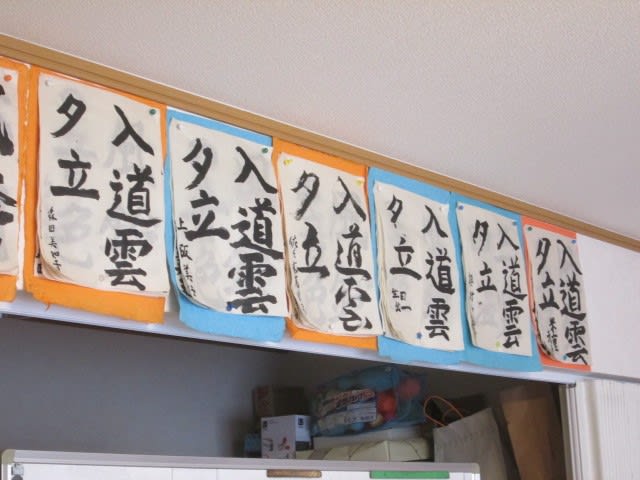 入道雲
夕立
入道雲
夕立
入道雲
夕立
入道雲
夕立
入道雲
夕立
入道雲
夕立